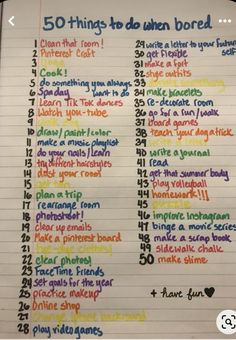 50 things to do when bored
1 Clean that room!
2 Pinterest Craft
3
4 Cook!
5 do something you always want to do
6 Spa day
7 learn Tik Tok dances
8 Watch you-tube
9
10 draw/paint/color
11 make a music playlist
12 do your nails/learn
13 try different hairstyles
14 dust your room
15
16 plan a trip
17 rearrange room
18 photoshoot!
19 clear up emails
20 Make a pinterest board
21 clothing
22 clear photos!
23 FaceTime friends
24 set goals for the year
25 practice makeup
26 Online shop
27 change background
28 play video games
29 write a letter to your future self
30 get flexible
31 make a fort
32 style outfits
33 something
34 make bracelets
35 re-decorate room
36 go for a fun/walk
37 board games
38 teach your dog a trick
39 write a
40 write a journal
41 read
42 get that summer body
43 play volleyball
44 homework!!!
45
46 improve instagram
47 binge a movie series
48 make a scrap book
49 sidewalk chalk
50 make slime
+ have fun